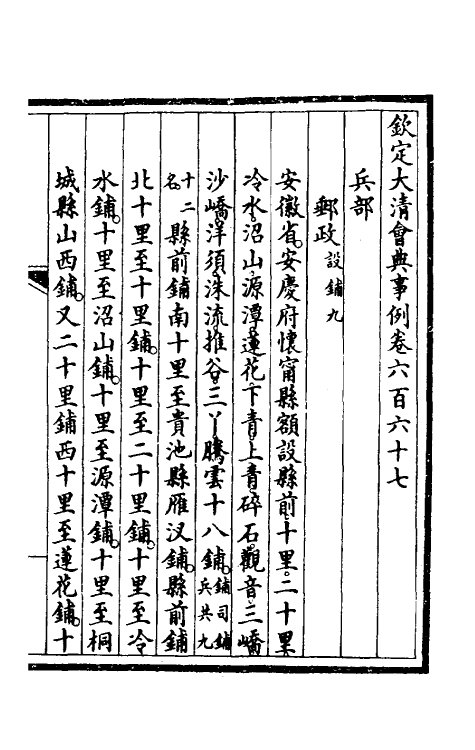 欽定大清會典事例卷六百六十七
兵部
郵政設鋪九
安徽省。安慶府懷甯縣額設縣前。十里。二十里。
冷水。沼山。源潭。蓮花。下青。上青。碎石。觀音。三嶠。
沙嶠。洋須。洙流。推谷。三丫。騰雲十八鋪。鋪司鋪兵共九
十二名。縣前鋪南十里至貴池縣雁汊鋪。縣前鋪
北十里至十里鋪。十里至二十里鋪。十里至冷
水鋪。十里至沼山鋪。十里至源潭鋪。十里至桐
城縣山西鋪。又二十里鋪西十里至蓮花鋪。十